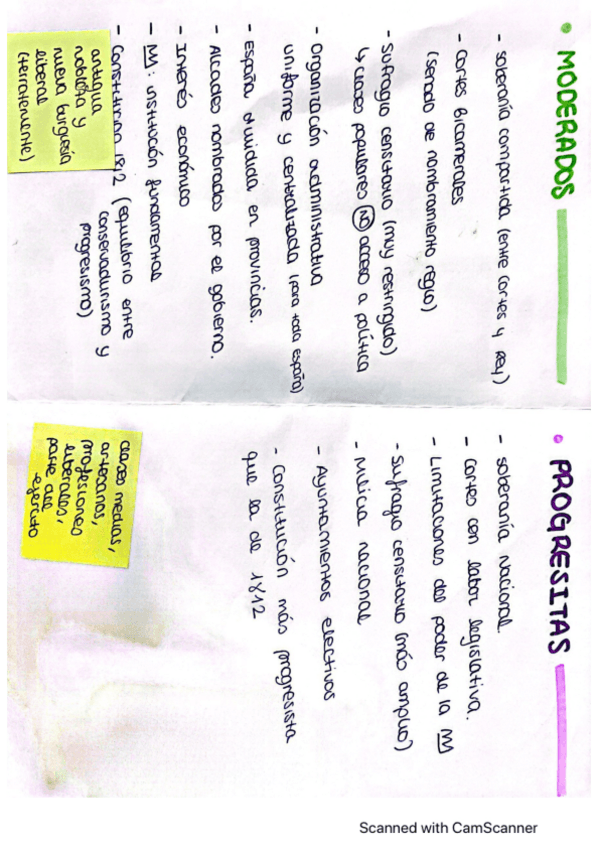 • MODERADOS
- soberanía compartida (entre cortes y rey)
- cortes Bicamerales
(senado de nombramiento regio)
- sufragio censitario (muy restringido)
↳ clases populares NO acceso a política
- Organización administrativa
uniforme y centralizada (para toda españa)
- España dividida en provincias.
- Alcaldes nombrados por el gobierno.
- Interés económico
- M: institución fundamental
- Constitución 1812 (equilibrio entre
conservadurismo y
progresismo)
antigua
nobleza y
nueva burguesía
liberal
(terrateniente)
• PROGRESITAS
- soberanía nacional.
- cortes con labor legislativa.
- Limitaciones del poder de la M
- Sufragio censitario (más amplio)
- Milicia nacional
- Ayuntamientos electivos
- Constitución más progresista
que la de 1812
clases medias,
artesanos,
profesiones
liberales,
parte del
ejercito
Scanned with CamScanner